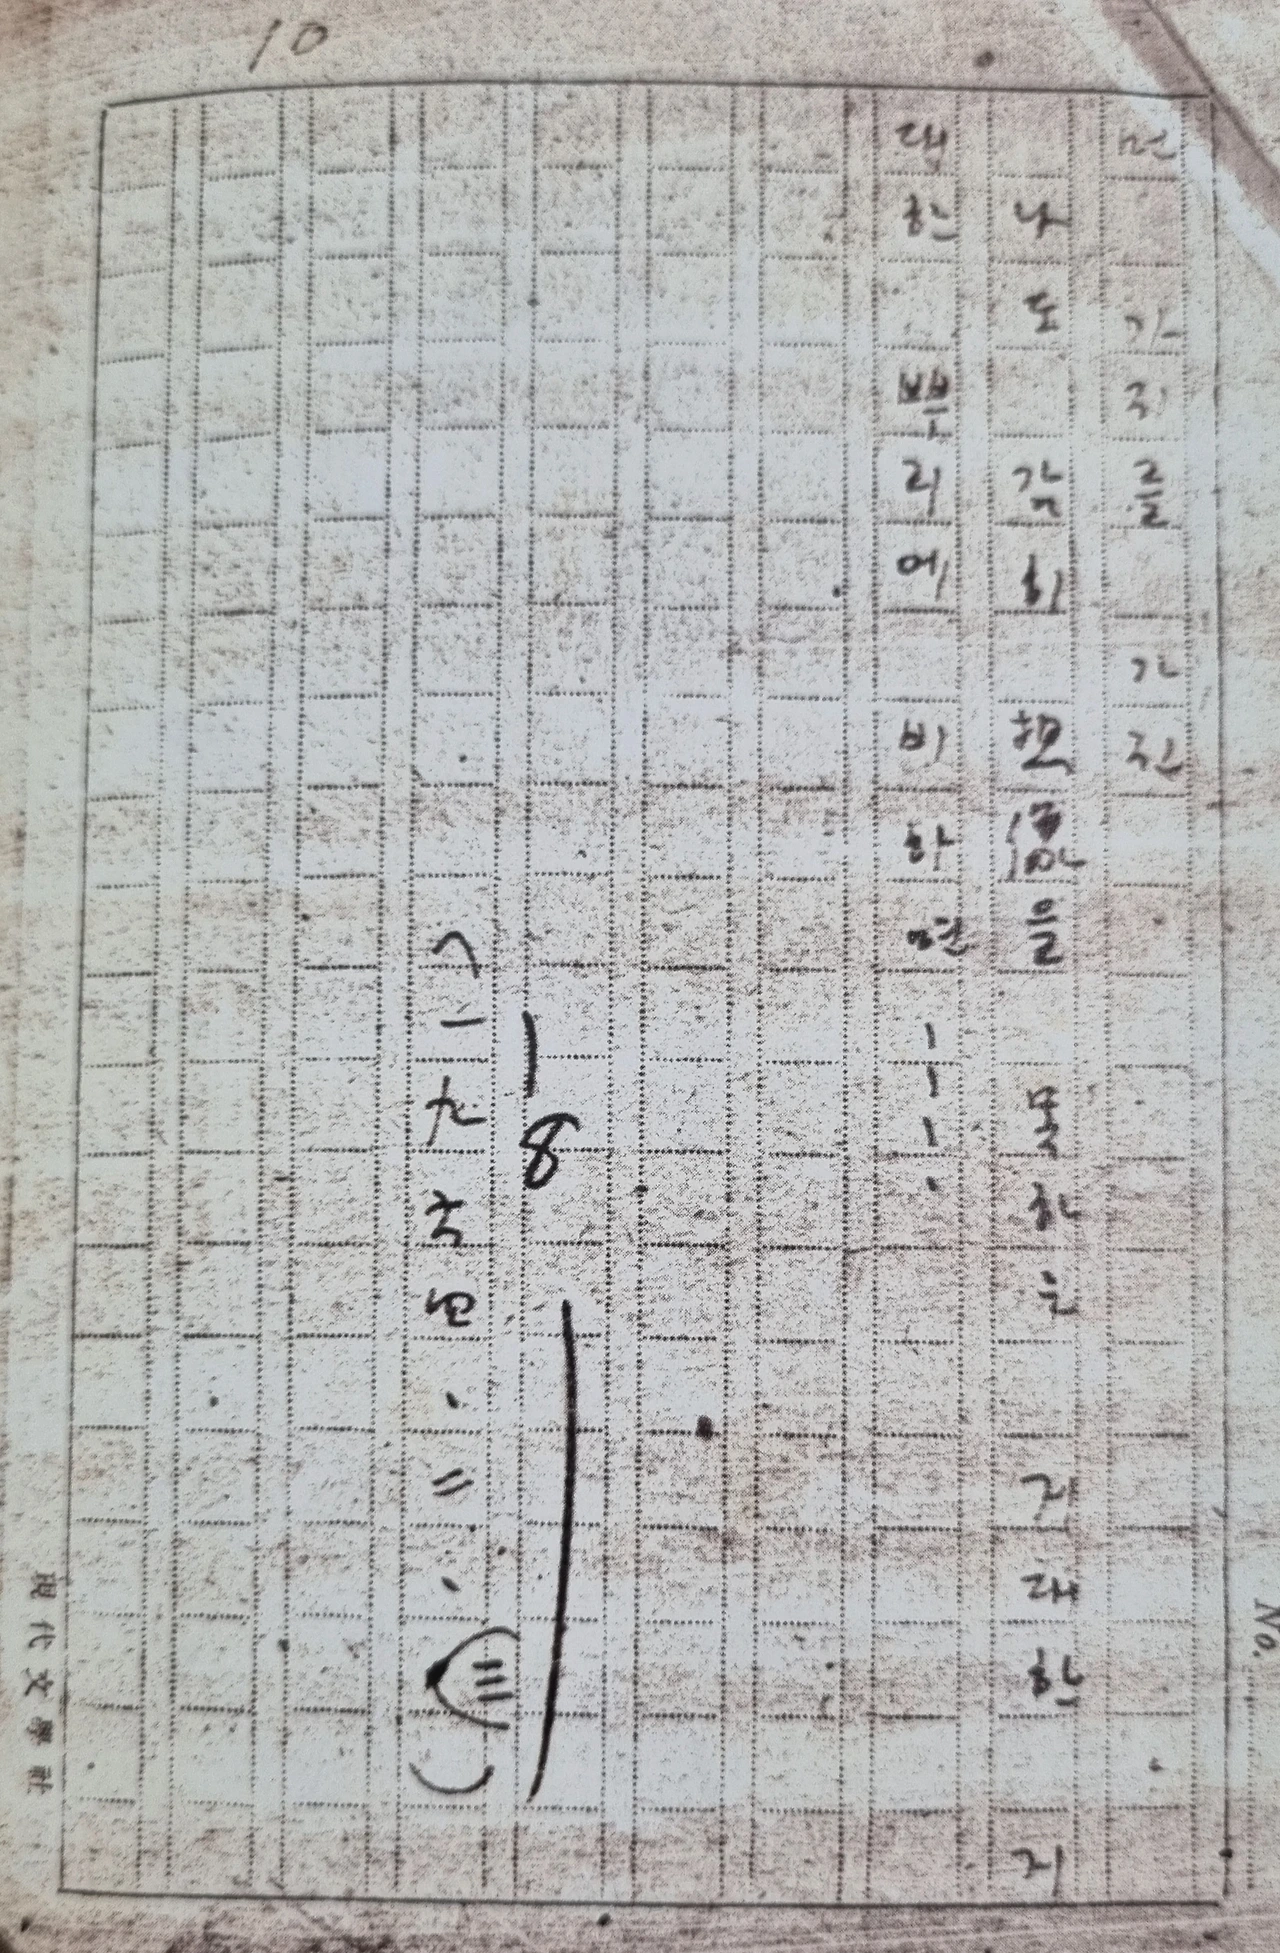 10
No.
먼 가지를 가진
나도 감히 想像을 못하는 거대한 거
대한 뿌리에 비하면……
8
(一九六四·二·三)
現代文學社